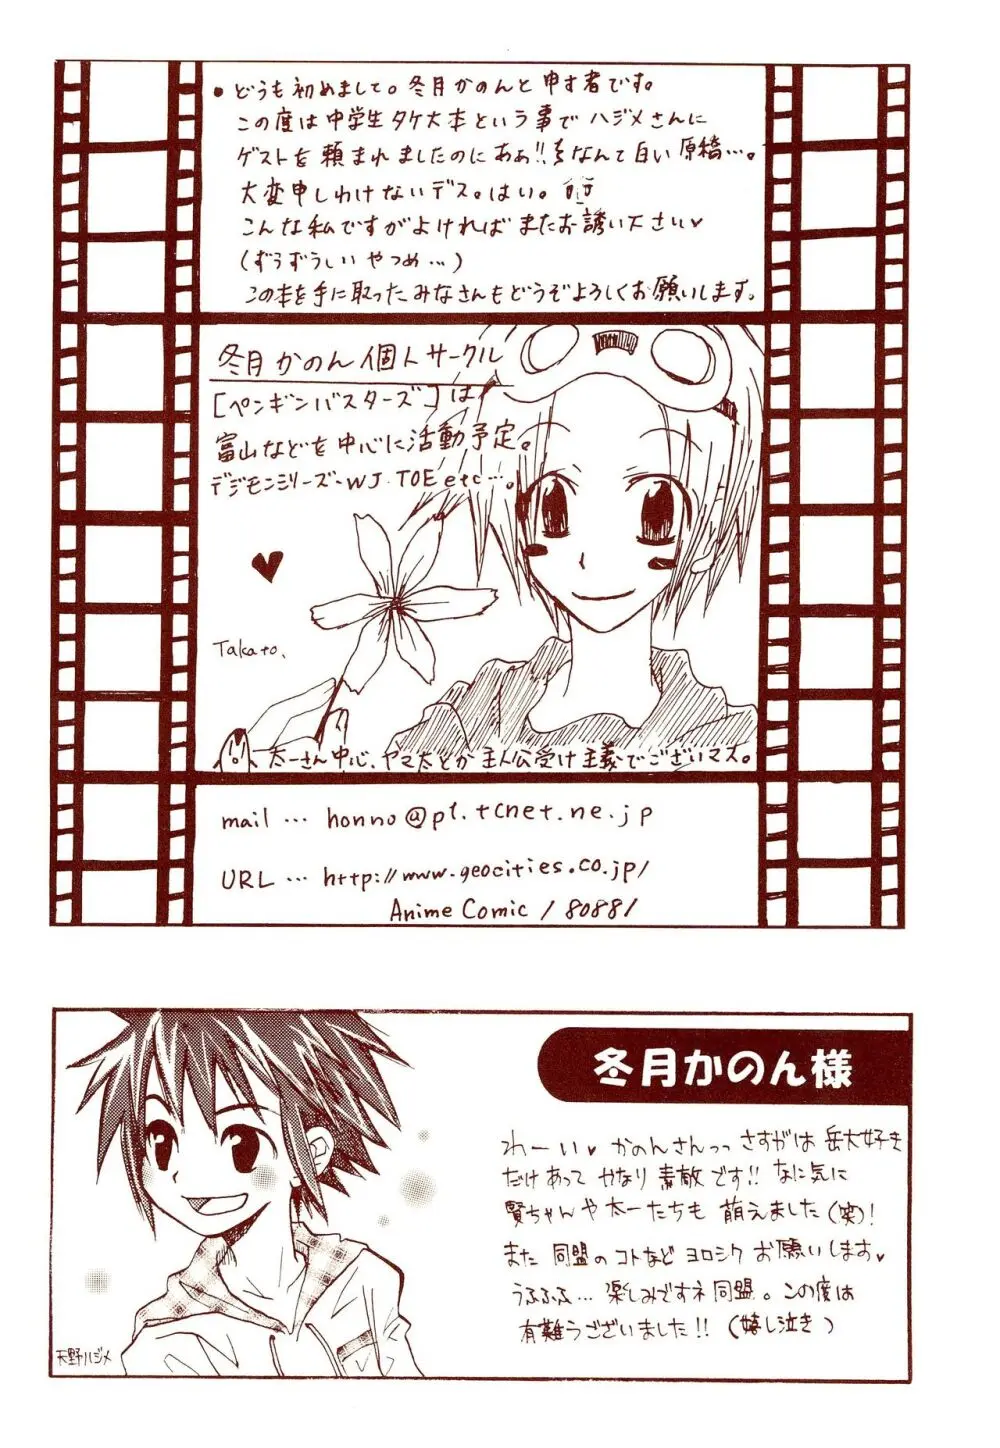 • どうも初めまして。冬月かのんと申す者です。
この度は中学生タケ大本という事でハジメさんに
ゲストを頼まれましたのにあぁ!!なんて白い原稿…。
大変申しわけないデス。はい。
こんな私ですがよければまたお誘い下さい♥
(ずうずうしいやつめ…)
この本を手に取ったみなさんもどうぞよろしくお願いします。
冬月かのん個人サークル
[ペンギンバスターズ]は
富山などを中心に活動予定。
デジモンシリーズ・WJ・TOE etc…。
Takato.
太一さん中心、ヤマ太とか主人公受け主義でございマス。
mail … honno@p1.tcnet.ne.jp
URL … http://www.geocities.co.jp/
AnimeComic/80881
冬月かのん様
わーい♥かのんさんっっさすがは岳太好き
だけあってかなり素敵です!!なに気に
賢ちゃんや太一たちも萌えました(笑)!
また同盟のコトなどヨロシクお願いします♥
うふふふ…楽しみですネ同盟。この度は
有難うございました!!(嬉し泣き)
天野ハジメ